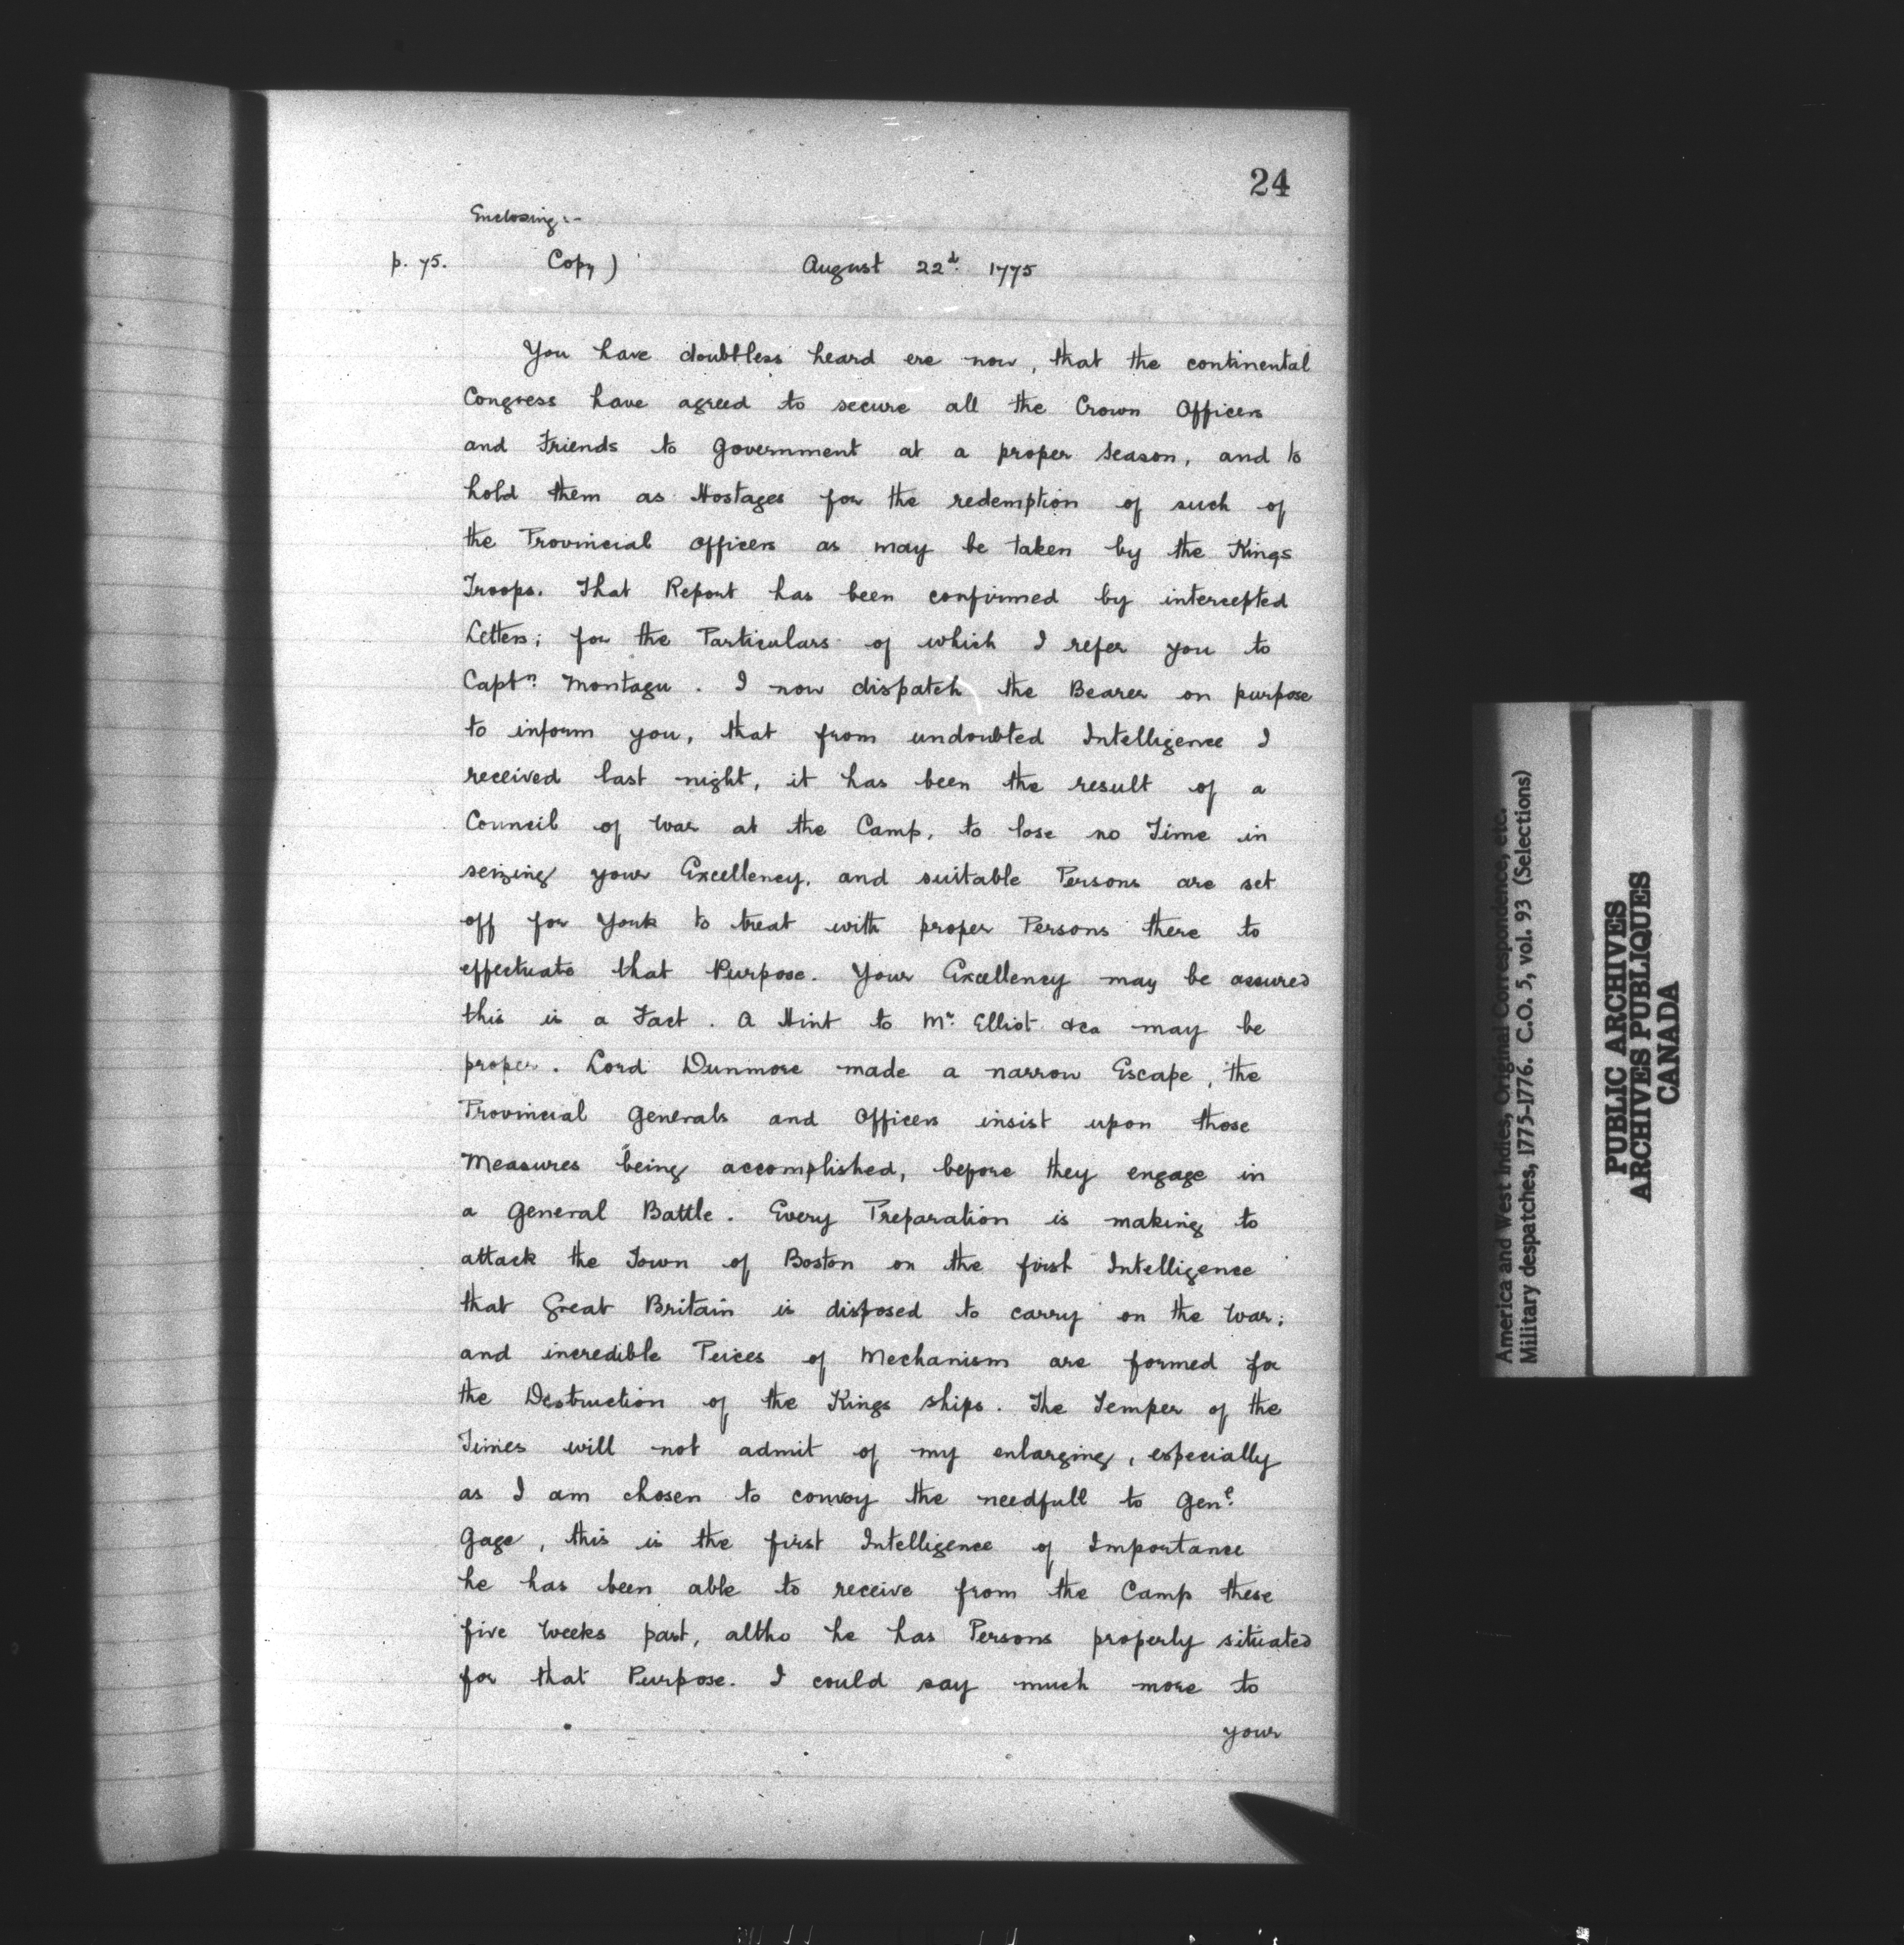 24
Enclosing:-
p. 75. Copy) August 22d. 1775
You have doubtless heard ere now, that the continental
Congress have agreed to secure all the Crown Officers
and Friends to Government at a proper Season, and to
hold them as Hostages for the redemption of such of
the Provincial Officers as may be taken by the Kings
Troops. That Report has been confirmed by intercepted
Letters; for the Particulars of which I refer you to
Captn. Montagu. I now dispatch the Bearer on purpose
to inform you, that from undoubted Intelligence I
received last night, it has been the result of a
Council of War at the Camp, to lose no Time in
seizing your Excellency, and suitable Persons are set
off for York to treat with proper Persons there to
effectuate that Purpose. Your Excellency may be assured
this is a Fact. A Hint to Mr. Elliot &ca may be
proper. Lord Dunmore made a narrow Escape, the
Provincial Generals and Officers insist upon those
Measures being accomplished, before they engage in
a General Battle. Every Preparation is making to
attack the Town of Boston on the first Intelligence
that Great Britain is disposed to carry on the War;
and incredible Peices of Mechanism are formed for
the Destruction of the Kings Ships. The Temper of the
Times will not admit of my enlarging, especially
as I am chosen to convoy the needfull to Genl.
Gage, this is the first Intelligence of Importance
he has been able to receive from the Camp these
five Weeks past, altho he has Persons properly situated
for that Purpose. I could say much more to
your
America and West Indies, Original Correspondence, etc.
Military despatches, 1775-1776. C.O. 5, vol. 93 (Selections)
PUBLIC ARCHIVES
ARCHIVES PUBLIQUES
CANADA